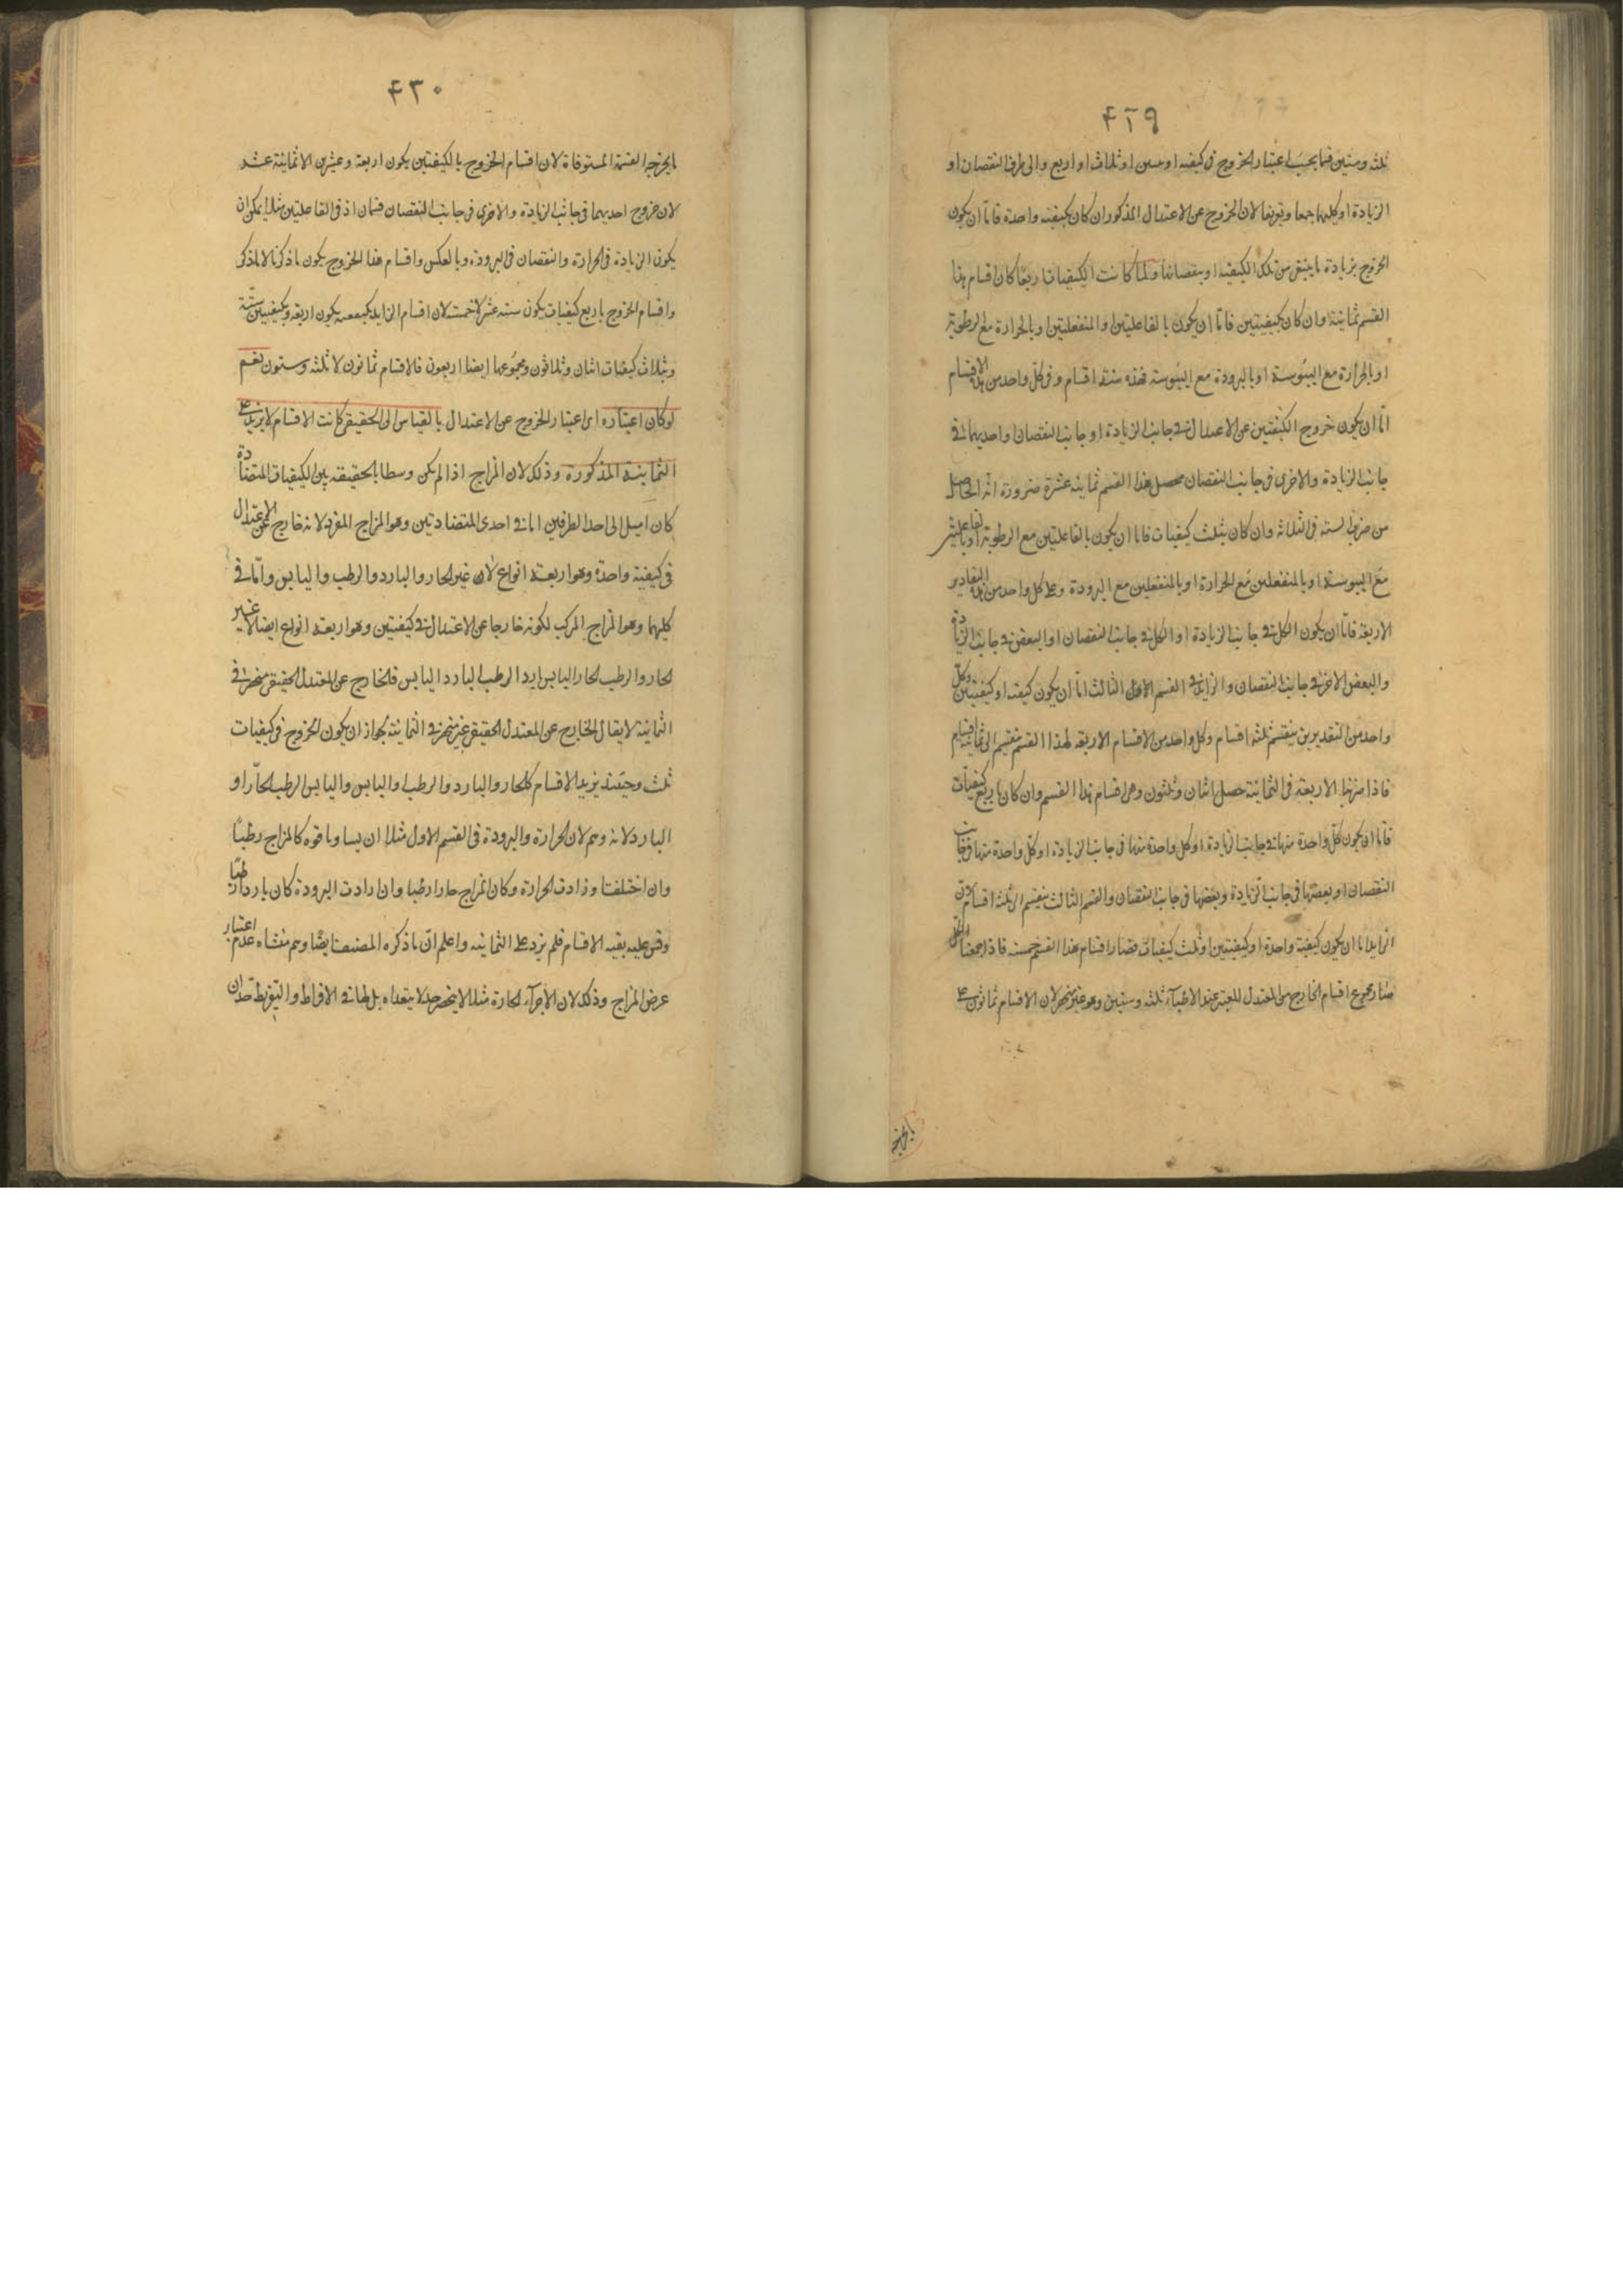 ۴۲۹
ثلثه وستين فبما بحسب اعتبار الخروج فى كيفيه او ثلاث او اربع والى طرف النقصان او
الزيادة او كليهما جمعا لان الخروج عن الاعتدال المذكور ان كان بكيفيه واحدة فاما ان يكون
الخروج بزيادة ما ينبغى من تلك الكيفيه او بنقصانها ولما كانت الكيفيات اربعا كان اقسام هذا
القسم ثمانية وان كان بكيفيتين فاما ان يكون بالفاعليتين او المنفعلتين او بالحرارة مع الرطوبة
او بالحرارة مع اليبوسة او بالبرودة مع اليبوسة فهذه ستة اقسام وفى كل واحد من هذه الاقسام
اما ان يكون خروج الكيفيتين عن الاعتدال فى جانب الزيادة او جانب النقصان او احديهما فى
جانب الزيادة والاخرى فى جانب النقصان محصل هذا القسم ثمانية عشرة ضرورة انه الحاصل
من ضرب الستة فى الثلاثة وان كان بثلث كيفيات فاما ان يكون بالفاعليتين مع الرطوبة او بالفاعليتين
مع اليبوسة او بالمنفعلتين مع الحرارة او بالمنفعلتين مع البرودة وعلى كل واحد من هذه التقادير
الاربعة فاما ان يكون الكل فى جانب الزيادة او الكل فى جانب النقصان او البعض فى جانب الزيادة
والبعض الاخر فى جانب النقصان والزايد فى القسم الثالث اما ان يكون كيفيه او كيفيتين وكل
واحد من التقديرين ينقسم ثلثه اقسام وكل واحد من الاقسام الاربعه لهذا القسم ينقسم الى ثمانية اقسام
فاذا ضربنا الاربعة فى الثمانية حصل اثنان وثلثون وهى اقسام هذا القسم وان كان باربع كيفيات
فاما ان يكون كل واحدة منها فى جانب الزيادة او كل واحدة منها فى جانب الزيادة او كل واحدة منها فى جانب
النقصان او بعضها فى جانب الزيادة وبعضها فى جانب النقصان والقسم الثالث ينقسم الى ثلثه اقسام لان
الزايد اما ان يكون كيفية واحدة او كيفيتين او ثلث كيفيات فصار اقسام هذا القسم خمسة فاذا جمعنا الكل
صار مجموع اقسام الخارج عن المعتدل المعتبر عند الاطباء ثلثه وستين وهو غير منحصر لان الاقسام ثمانون على
ما يخرجه
۴۳۰
ما يخرجه القسمة المستوفاة لان اقسام الخروج بالكيفيتين يكون اربعة وعشرين لا ثمانية عشر
لان خروج احديهما فى جانب الزيادة والاخرى فى جانب النقصان قسمان اذ فى الفاعليتين مثلا يمكن ان
يكون الزيادة فى الحرارة والنقصان فى البرودة وبالعكس واقسام هذا الخروج يكون ما ذكرنا لا ما ذكر
واقسام الخروج باربع كيفيات يكون ستة عشر لا خمسة لان اقسام الزايد بكيفيه يكون اربعة وبكيفيتين ستة
وبثلاث كيفيات اثنان وثلاثون ومجموعها ايضا اربعون فالاقسام ثمانون لا ثلثه وستون نعم
لو كان اعتباره اى اعتبار الخروج عن الاعتدال بالقياس الى الحقيقى كانت الاقسام لا يزيد على
الثمانية المذكورة وذلك لان المزاج اذا لم يكن وسطا بالحقيقة بين الكيفيات المتضادة
كان اميل الى احد الطرفين اما فى احدى المتضادتين وهو المزاج المفرد لانه خارج عن الاعتدال
فى كيفية واحدة وهو اربعة انواع لان غير الحار والبارد والرطب واليابس واما فى
كليهما وهو المزاج المركب لكونه خارجا عن الاعتدال فى كيفيتين وهو اربعة انواع ايضا لا غير
الحار والرطب الحار اليابس البارد الرطب البارد اليابس فالخارج عن المعتدل الحقيقى منحصر فى
الثمانية لا يقال الخارج عن المعتدل الحقيقى غير منحصر فى الثمانية لجواز ان يكون الخروج فى كيفيات
ثلث وحينئذ يزيد الاقسام كالحار والبارد والرطب او اليابس واليابس الرطب الحار او
البارد لانه وهم لان الحرارة والبرودة فى القسم الاول مثلا ان يساويا قوه كالمزاج رطبا
وان اختلفتا وزادت الحرارة وكان المزاج حارا رطبا وان زادت البرودة كان باردا رطبا
وقس عليه بقيه الاقسام فلم يزد على الثمانيه واعلم ان ما ذكره المصنف ايضا وهم منشاه عدم اعتبار
عرض المزاج وذلك لان الاجزاء الحارة مثلا لا ينحصر حد لا يتعداه بل لها فى الافراط والتفريط حدان